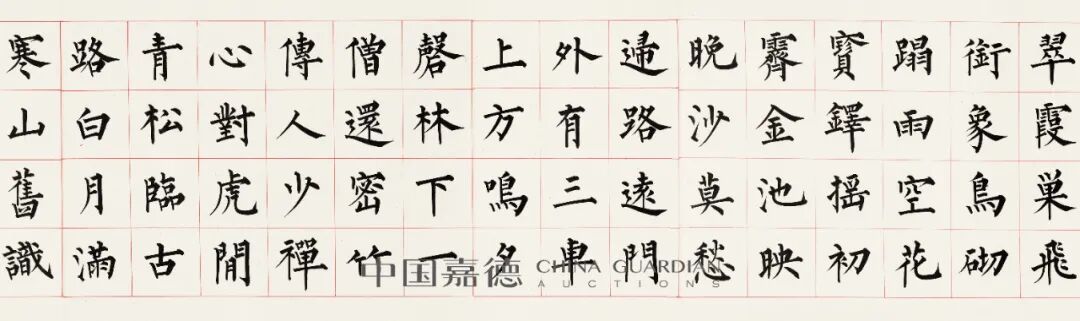 翠霞巢飛
銜象鳥砌
蹋雨空花
寶鐸摇初
霽金池映
晚沙莫愁
歸路遠門
外有三車
上方鳴夕
磬林下一
僧還密竹
傳人少禪
心對虎閒
青松臨古
路白月滿
寒山舊識
中国嘉德 CHINA GUARDIAN
AUCTIONS